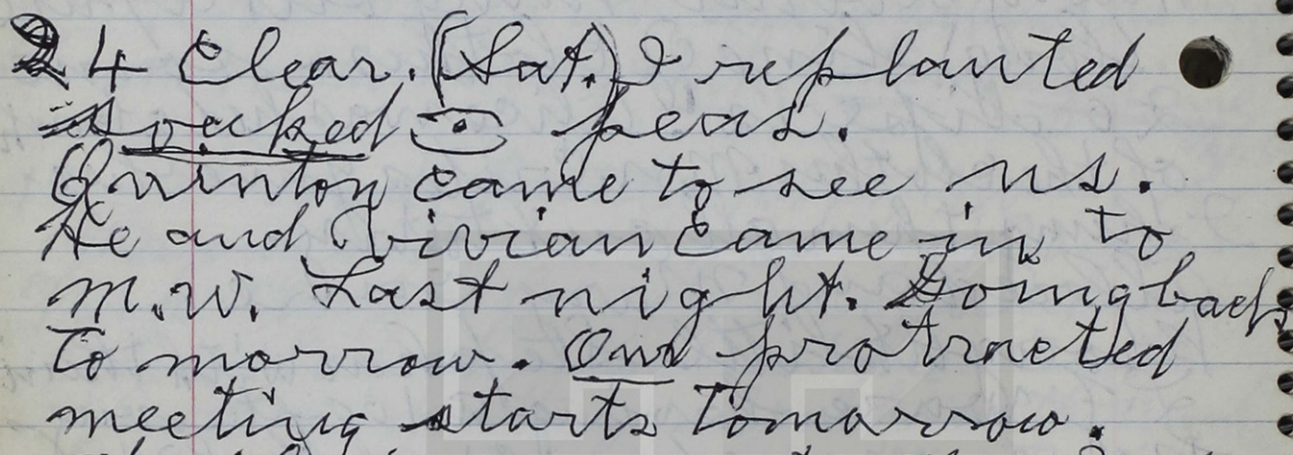 24 Clear. (Sat.) I replanted
peas.
Quinton came to see us.
He and Vivian came in to
M.W. Last night. Going back
to morrow. Our protracted
meeting starts Tomorrow.